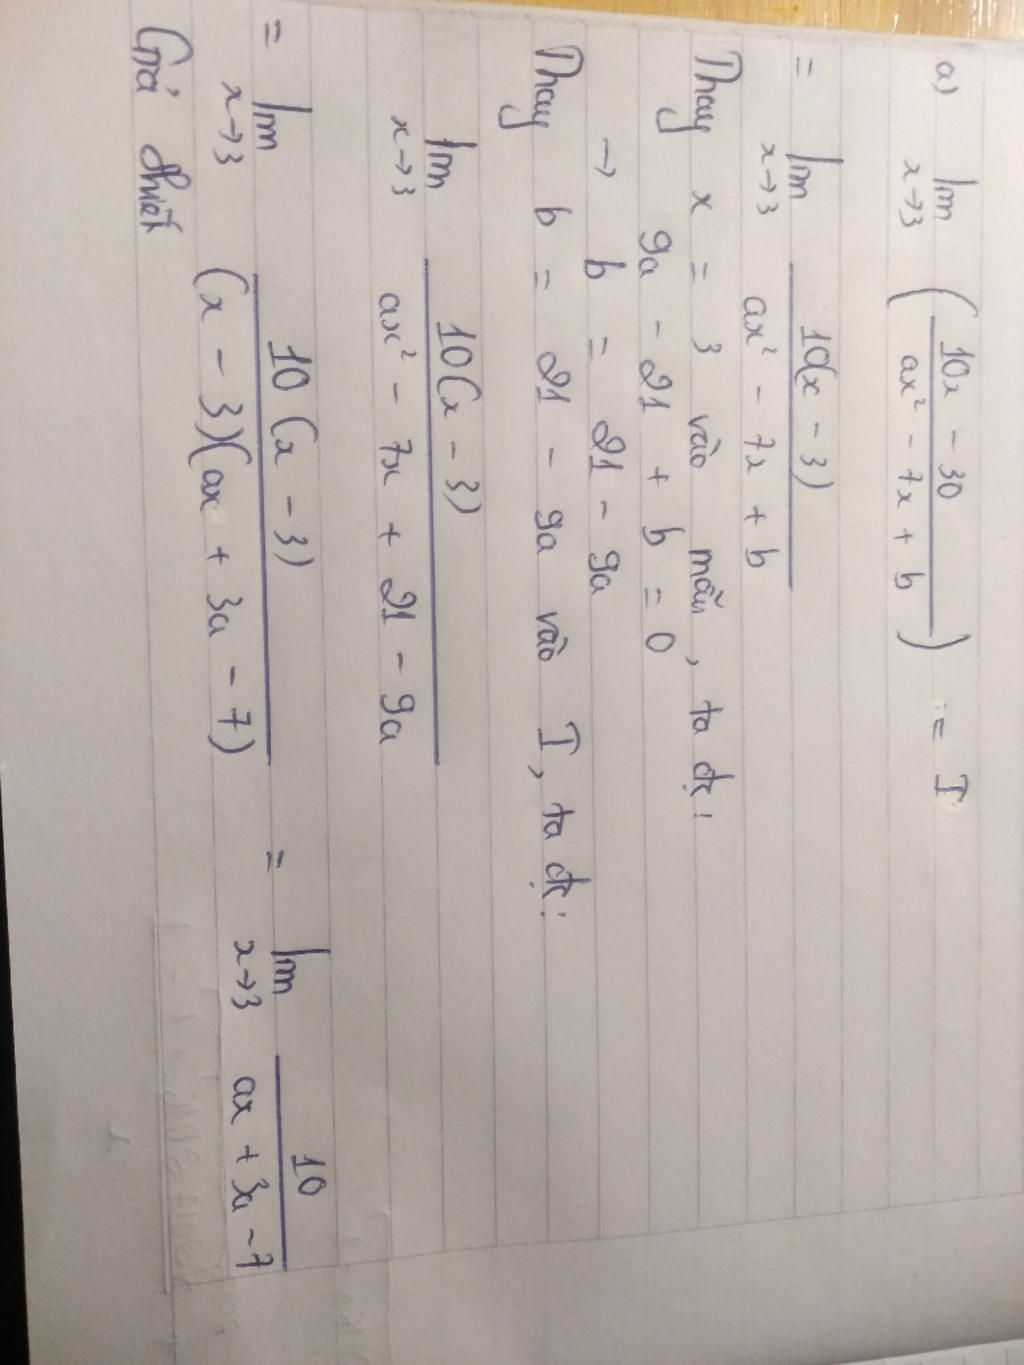 a) lim x→3 ( (10x - 30) / (ax² - 7x + b) ) = I
= lim x→3 10(x - 3) / (ax² - 7x + b)
Thay x = 3 vào mẫu, ta đc:
9a - 21 + b = 0
→ b = 21 - 9a
Thay b = 21 - 9a vào I, ta đc:
lim x→3 10(x - 3) / (ax² - 7x + 21 - 9a)
= lim x→3 10(x - 3) / ((x - 3)(ax + 3a - 7)) = lim x→3 10 / (ax + 3a - 7)
Giả thiết